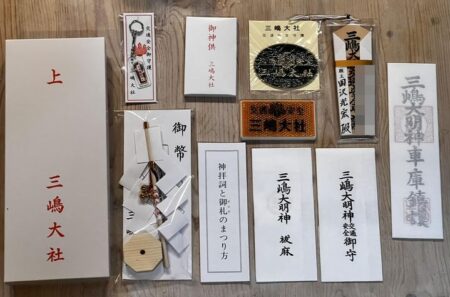 上
三嶋大社
交通安全御守護
三嶋大社
御神供
三嶋大社
三嶋大社
三嶋大社
三嶋大
田沢
殿
交通安全
三嶋大社
御幣
神拝詞と御札のまつり方
三嶋大明神
祓麻
三嶋大明神
交通安全
御守
三嶋大明神車庫鎮